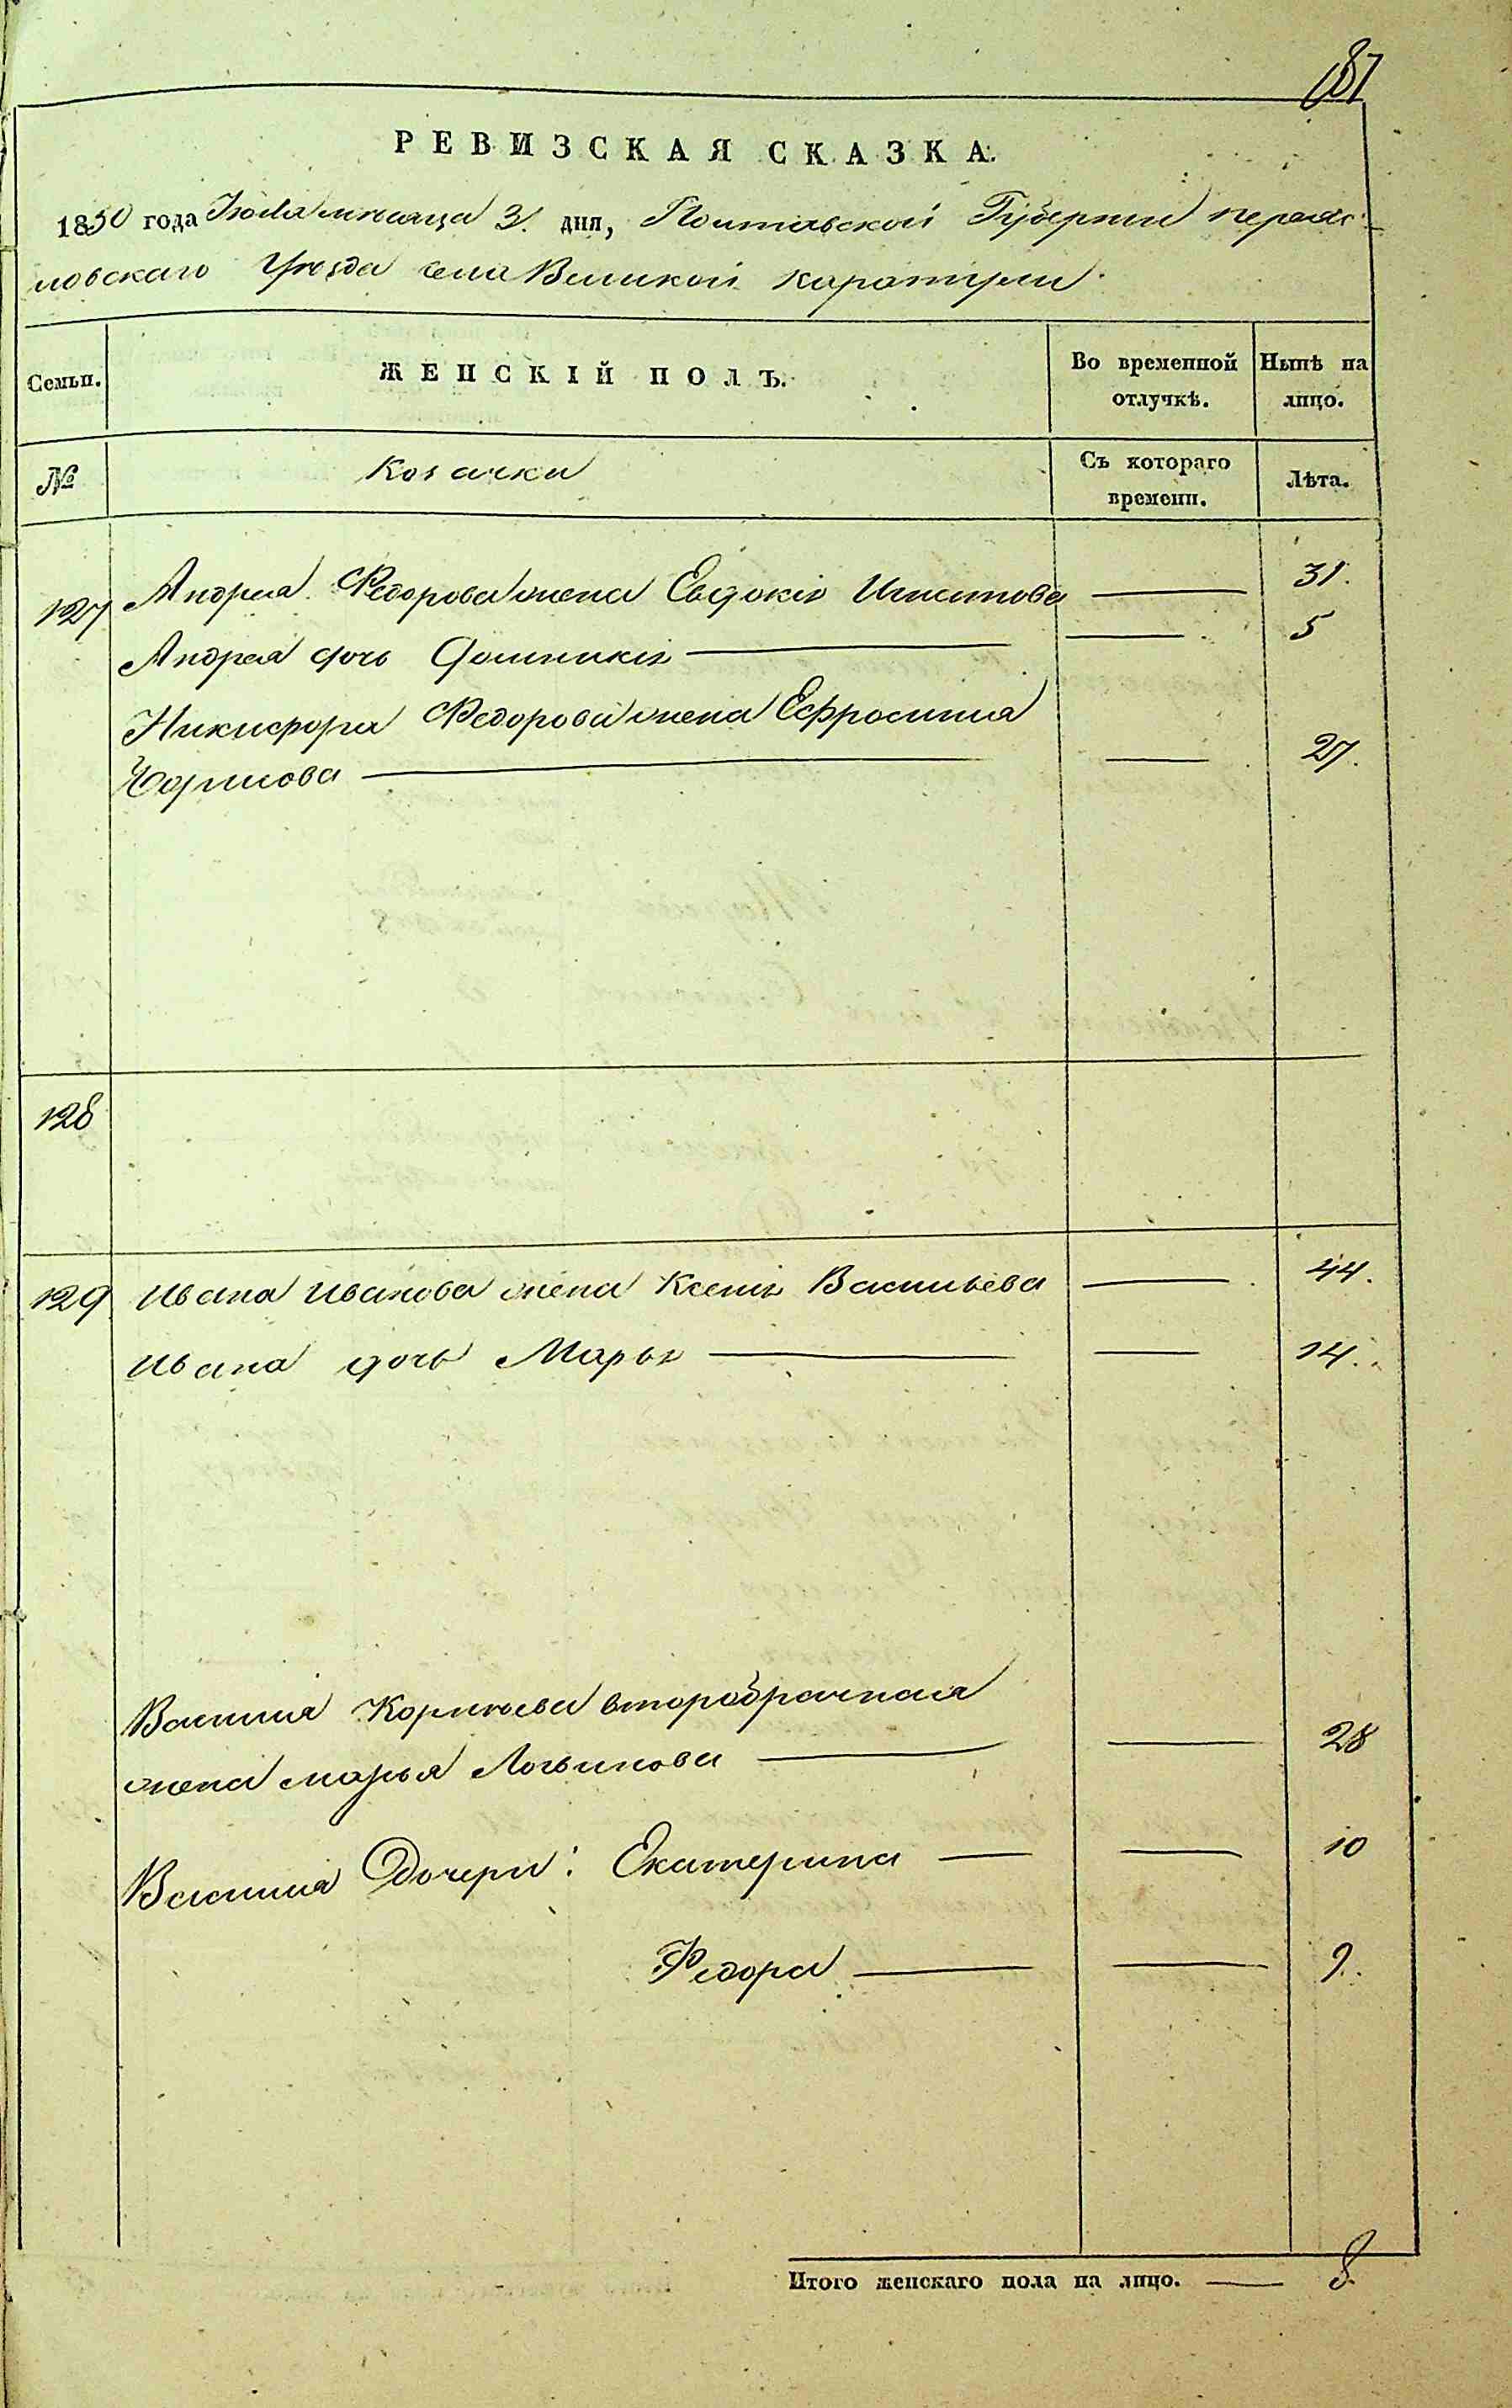 187
РЕВИЗСКАЯ СКАЗКА.
1850 года Июля месяца 3. дня, Полтавской Губернии переяс-
ловскаго Уезда села Великой каратули
Семьи. ЖЕНСКІЙ ПОЛЪ. Во временной отлучкѣ. Нынѣ на лицо.
№ Козачки Съ котораго времени. Лѣта.
127 Андрея Федорова жена Евдокія 31.
Андрея дочь Домникія 5
Никифора Федорова жена Ефросинія
27.
128
129 Ивана Иванова жена Ксенія Васильева 44.
Ивана дочь Марья 14.
Василия Корнѣева второбрачная
жена марья Логвинова 28
Василия Дочери: Екатерина 10
Федора 9.
Итого женскаго пола на лицо. 8